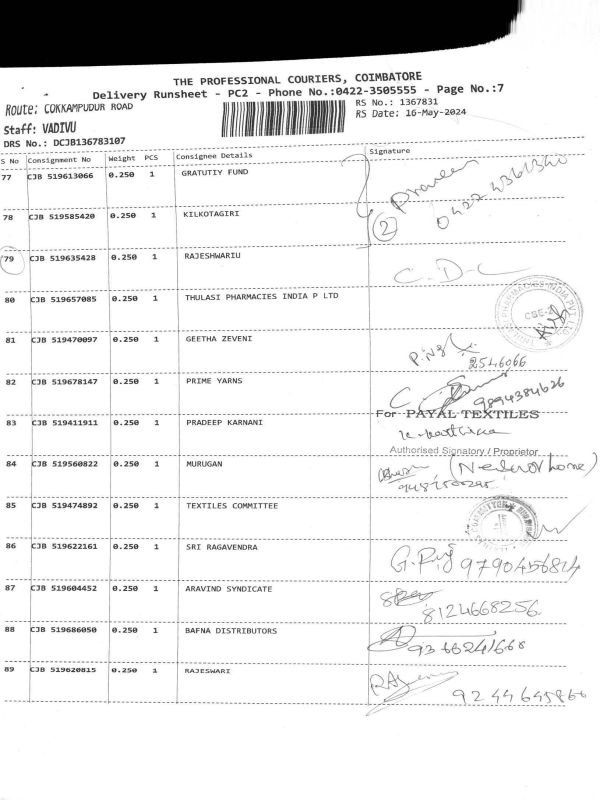 THE PROFESSIONAL COURIERS, COIMBATORE
Delivery Runsheet - PC2 - Phone No.:0422-3505555 - Page No.:7
Route: COKKAMPUDUR ROAD
RS No.: 1367831
Staff: VADIVU
RS Date: 16-May-2024
DRS No.: DCJB136783107
S No Consignment No Weight PCS Consignee Details Signature
77 CJB 519613066 0.250 1 GRATUTIY FUND Praveen
0422 4361340
78 CJB 519585420 0.250 1 KILKOTAGIRI 2
79 CJB 519635428 0.250 1 RAJESHWARIU C.D.C
80 CJB 519657085 0.250 1 THULASI PHARMACIES INDIA P LTD
81 CJB 519470097 0.250 1 GEETHA ZEVENI
2546066
82 CJB 519678147 0.250 1 PRIME YARNS 9894384626
For PAYAL TEXTILES
83 CJB 519411911 0.250 1 PRADEEP KARNANI
Authorised Signatory / Proprietor
84 CJB 519560822 0.250 1 MURUGAN
85 CJB 519474892 0.250 1 TEXTILES COMMITTEE
86 CJB 519622161 0.250 1 SRI RAGAVENDRA 9790456814
87 CJB 519604452 0.250 1 ARAVIND SYNDICATE
8124668256
88 CJB 519686050 0.250 1 BAFNA DISTRIBUTORS
9366241668
89 CJB 519620815 0.250 1 RAJESWARI
9244645866